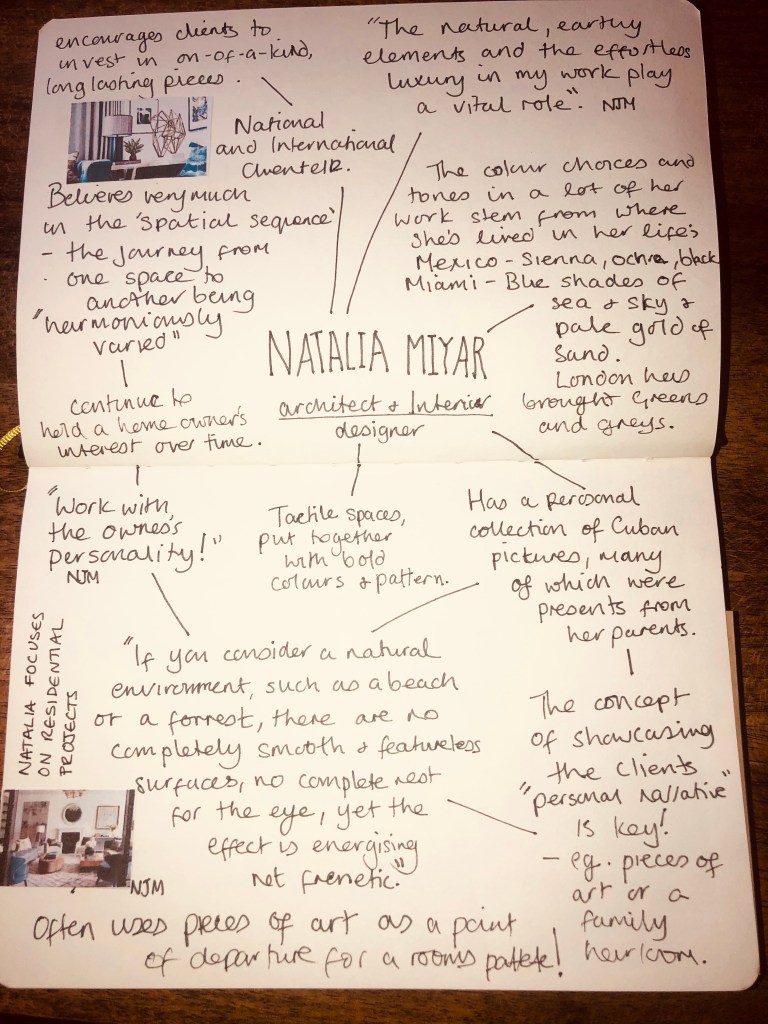 encourages clients to
invest in on-of-a-kind,
long lasting pieces.
"The natural, earthy
elements and the effortless
luxury in my work play
a vital role". NJM
National
and International
Clientelle.
Believes very much
in the 'spatial sequence'
- the journey from
one space to
another being
"harmoniously
varied"
The colour choices and
tones in a lot of her
work stem from where
she's lived in her life's
Mexico - Sienna, ochre, black
Miami - Blue shades of
sea & sky &
pale gold of
sand.
London has
brought Greens
and greys.
NATALIA MIYAR
architect & Interior
designer
continue to
hold a home owner's
interest over time.
"Work with,
the owner's
personality!"
NJM
Tactile spaces,
put together
with bold
colours & pattern.
Has a personal
collection of Cuban
pictures, many
of which were
presents from
her parents.
NATALIA FOCUSES
ON RESIDENTIAL
PROJECTS
"If you consider a natural
environment, such as a beach
or a forrest, there are no
completely smooth & featureless
surfaces, no complete rest
for the eye, yet the
effect is energising
not frenetic."
NJM
The concept
of showcasing
the clients
"personal narrative"
is key!
- eg. pieces of
art or a
family
heirloom.
Often uses pieces of art as a point
of departure for a rooms pattete!